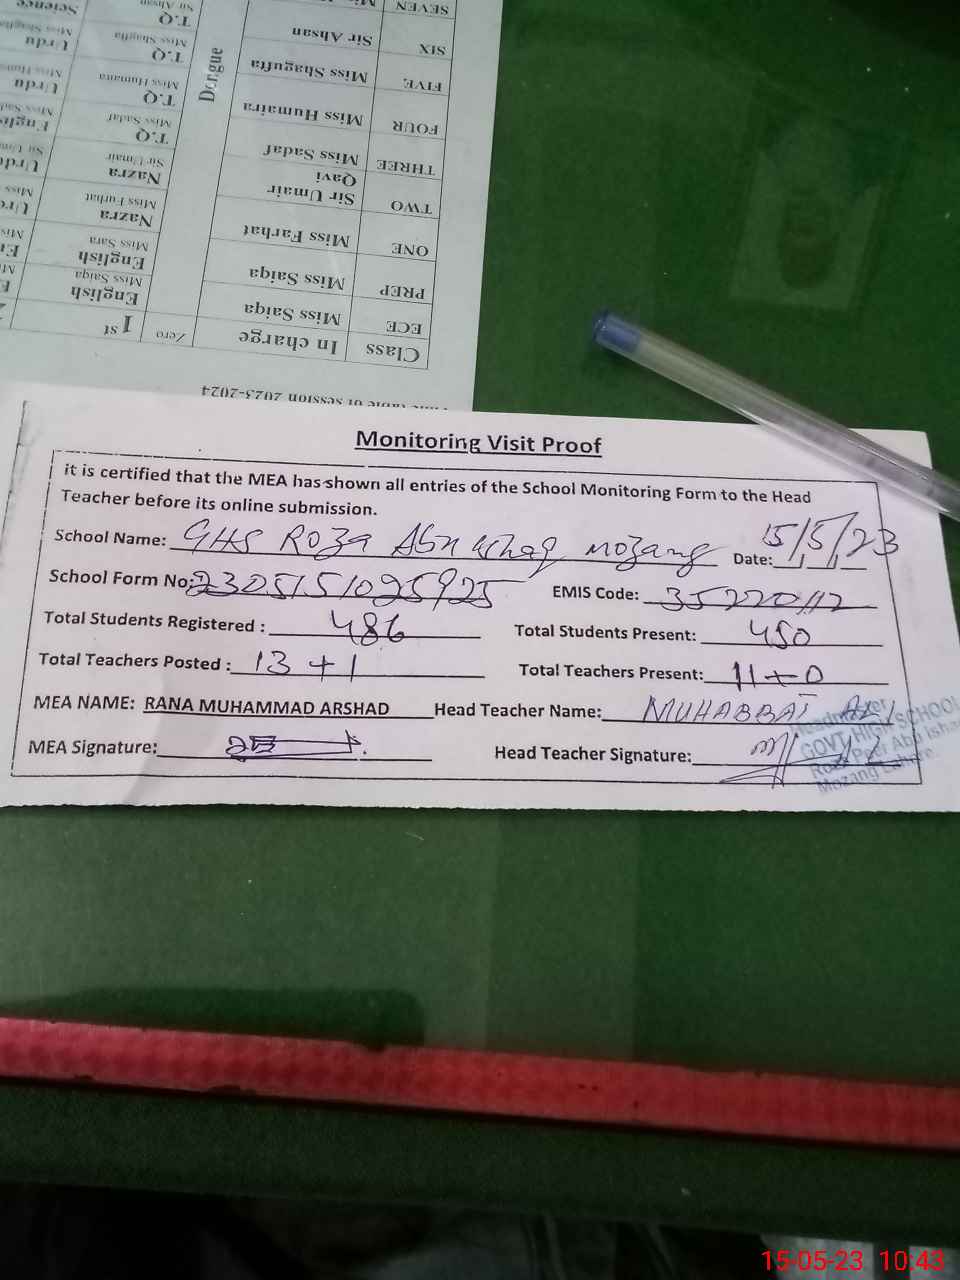 Time table of session 2023-2024
Class In charge Zero 1st
ECE Miss Saiqa English Miss Saiqa
PREP Miss Saiqa English Miss Sara
ONE Miss Farhat Nazra Miss Farhat
TWO Sir Umair Qavi Nazra Sir Umair
THREE Miss Sadaf T.Q Miss Sadaf
FOUR Miss Humaira T.Q Miss Humaira
FIVE. Miss Shagufta T.Q Miss Shagufta
SIX Sir Ahsan T.Q Sir Ahsan
SEVEN
Urdu
Urdu
Science
Monitoring Visit Proof
it is certified that the MEA has shown all entries of the School Monitoring Form to the Head
Teacher before its online submission.
School Name: GHS ROZA Abu Ishaq mozang Date: 15/5/23
School Form No: 2305151025925 EMIS Code: 35220112
Total Students Registered : 486 Total Students Present: 450
Total Teachers Posted : 13 + 1 Total Teachers Present: 11 + 0
MEA NAME: RANA MUHAMMAD ARSHAD Head Teacher Name: MUHABBAT ALI
MEA Signature: Head Teacher Signature:
Headmaster
GOVT. HIGH SCHOOL
Roza Peer Abu Isha
Mozang Lahore.
15-05-23 10:43